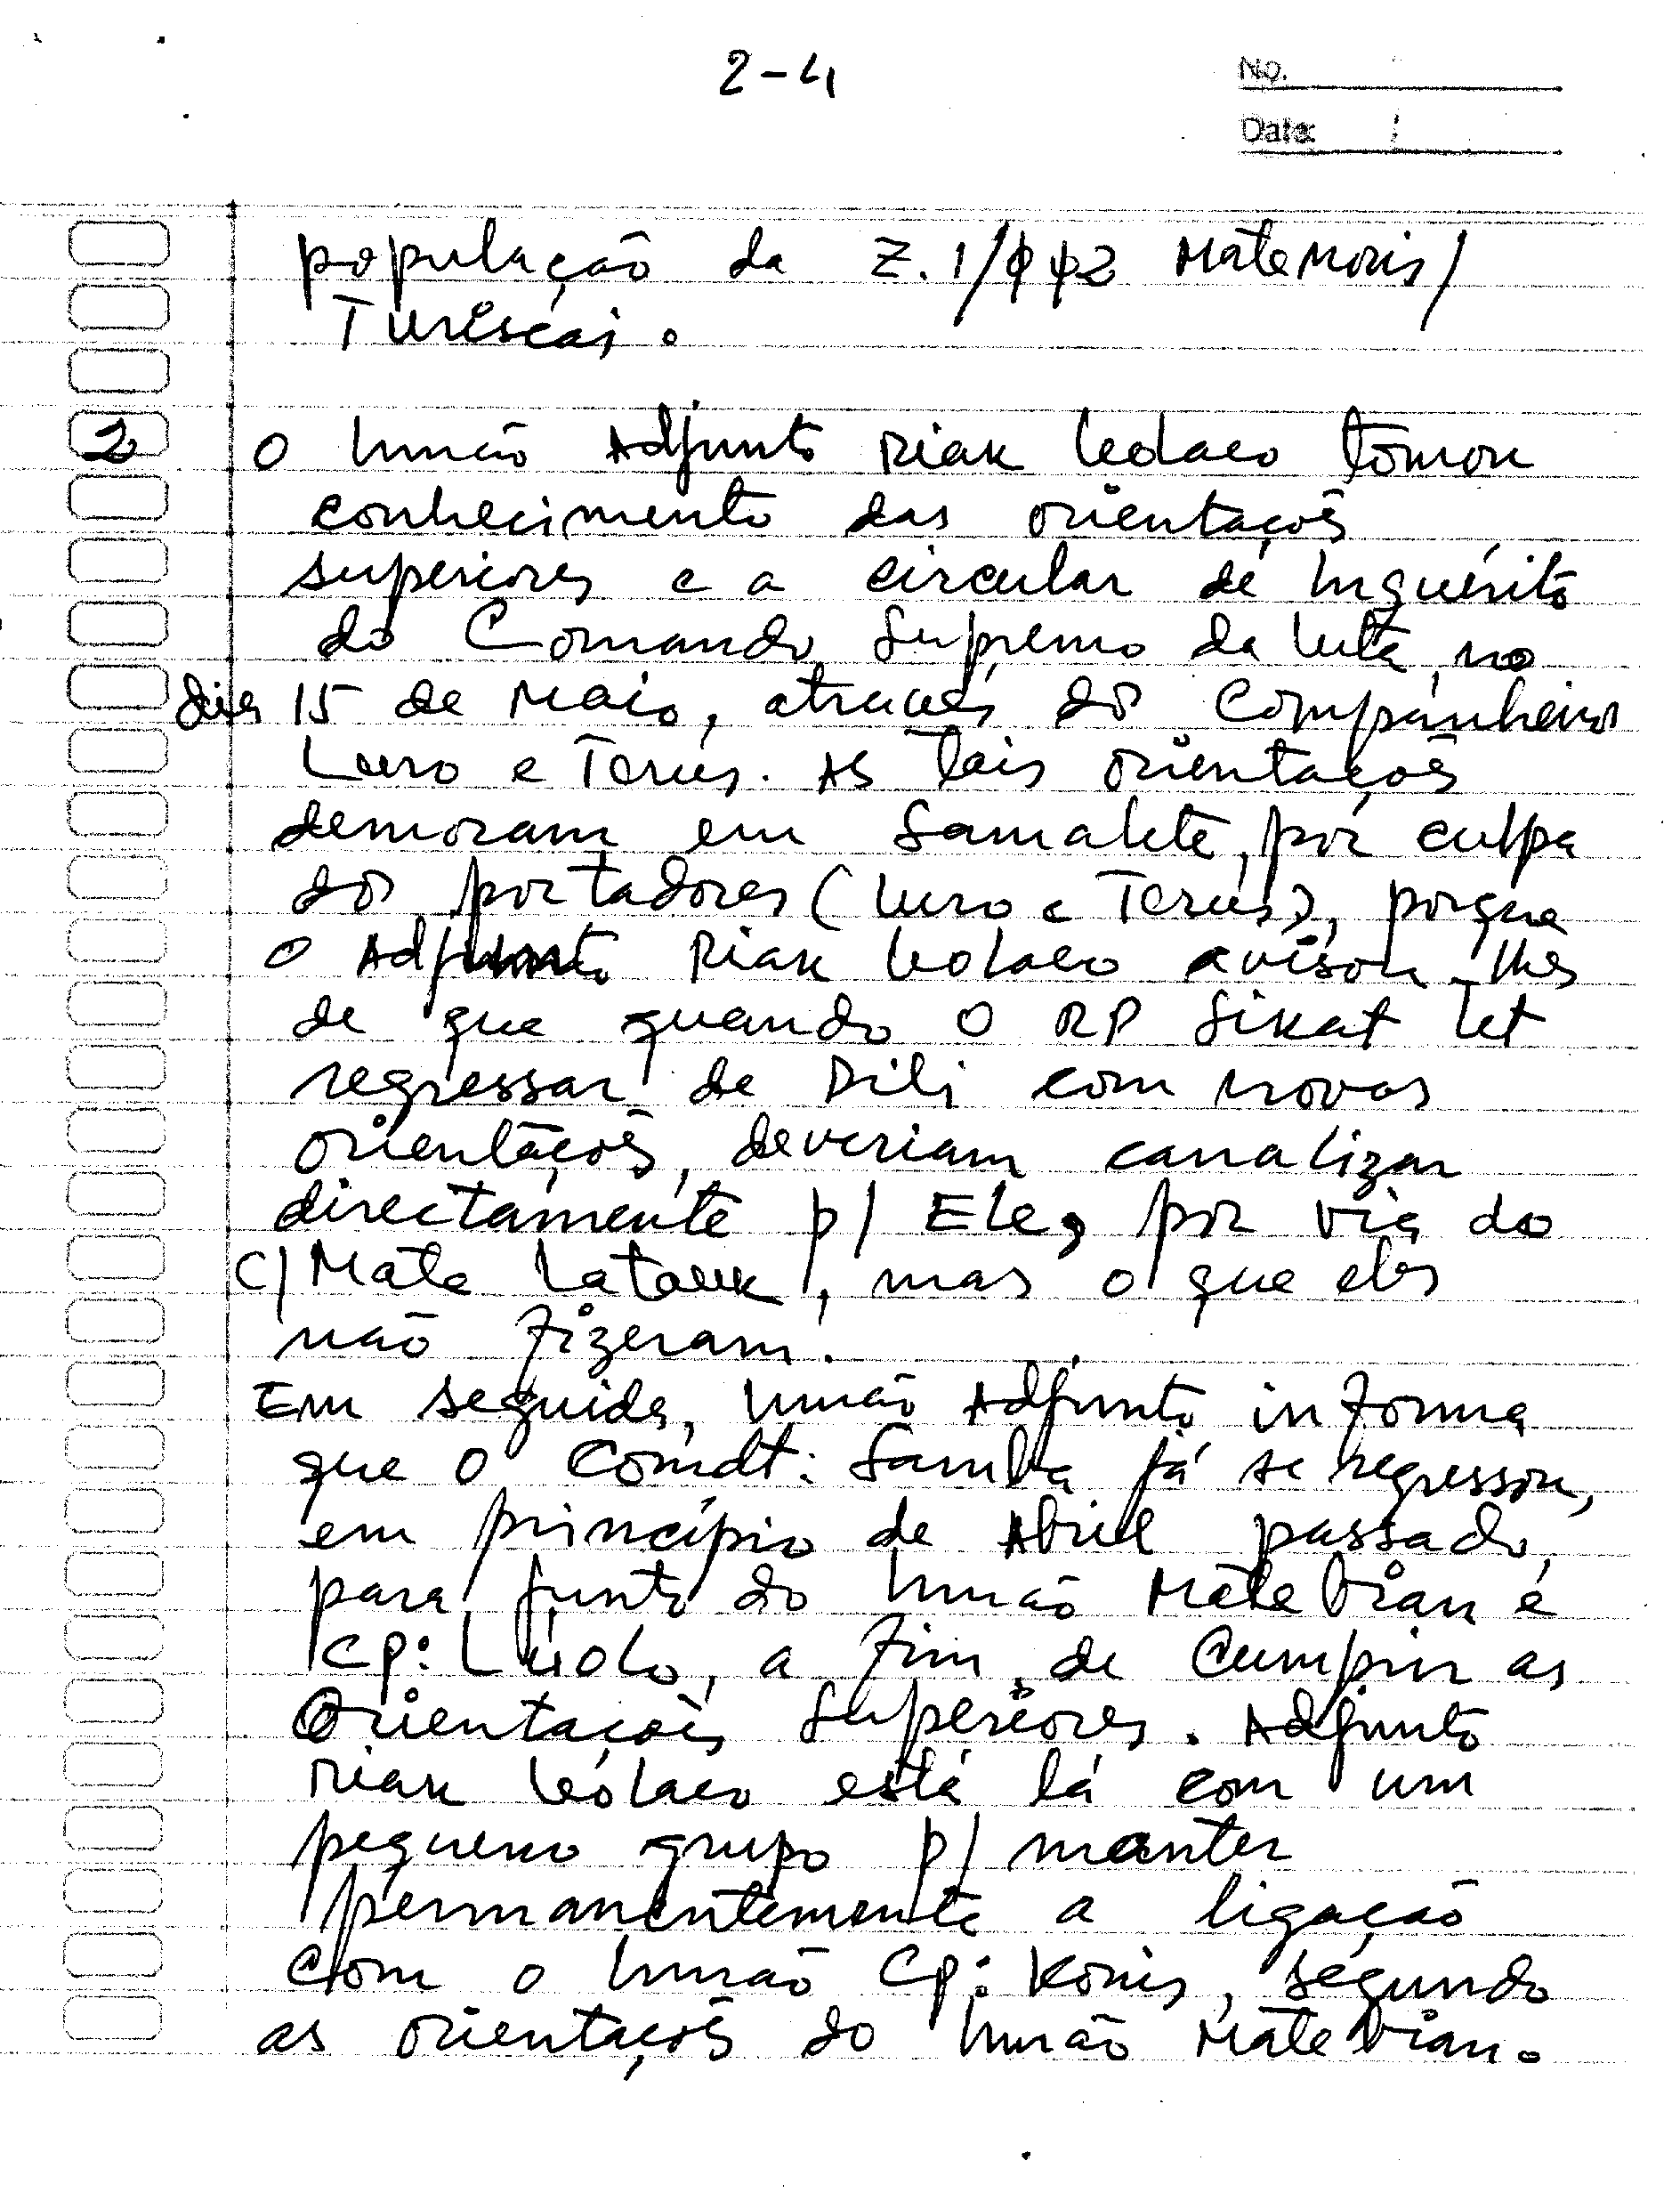 2-4
No.
Date:
população da Z.1/002 MateMoris/
Turiscai.
2 O Irmão Adjunto Riak Leolaco tomou
conhecimento das orientaçoẽs
superiores e a circular de Inquérito
do Comando Supremo da luta, no
dia 15 de Maio, através dos Companheiros
Luro e Terus. As tais orientaçoẽs
demoram em Samalete, por culpa
dos portadores (Luro e Terus), porque
o Adjunto Riak Leolaco avisou-lhes
de que quando o RP Sikat Let
regressar de Dili com novas
orientaçoẽs, deveriam canalizar
directamente p/ Ele, por via do
C/ Mate Latauk, mas o que eles
não fizeram.
Em seguida, Irmão Adjunto informa
que o Comdt: Samba já se regressou,
em princípio de Abril passado,
para junto do Irmão Mate Bian e
Cp: Lúolo, a fim de Cumprir as
Orientaçoẽs Superiores. Adjunto
Riak Leolaco está lá com um
pequeno grupo p/ manter
permanentemente a ligação
com o Irmão Cp: Konis, segundo
as orientaçoẽs do Irmão Mate Bian.